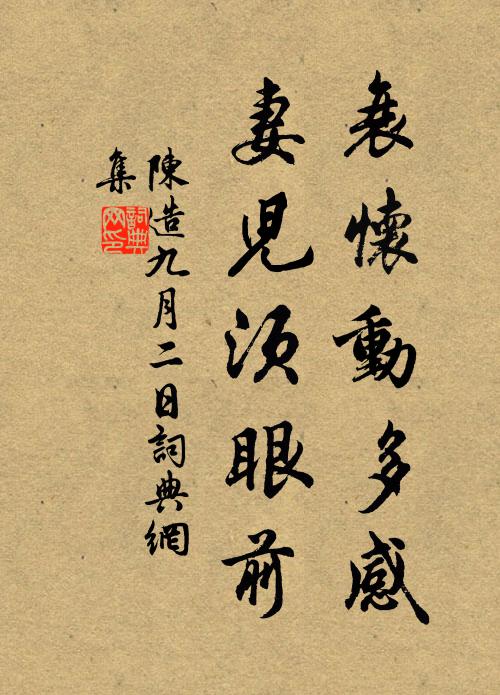 衰懷動多感
妻兒須眼前
陳造九月二日詞典網
集
詞典
网印